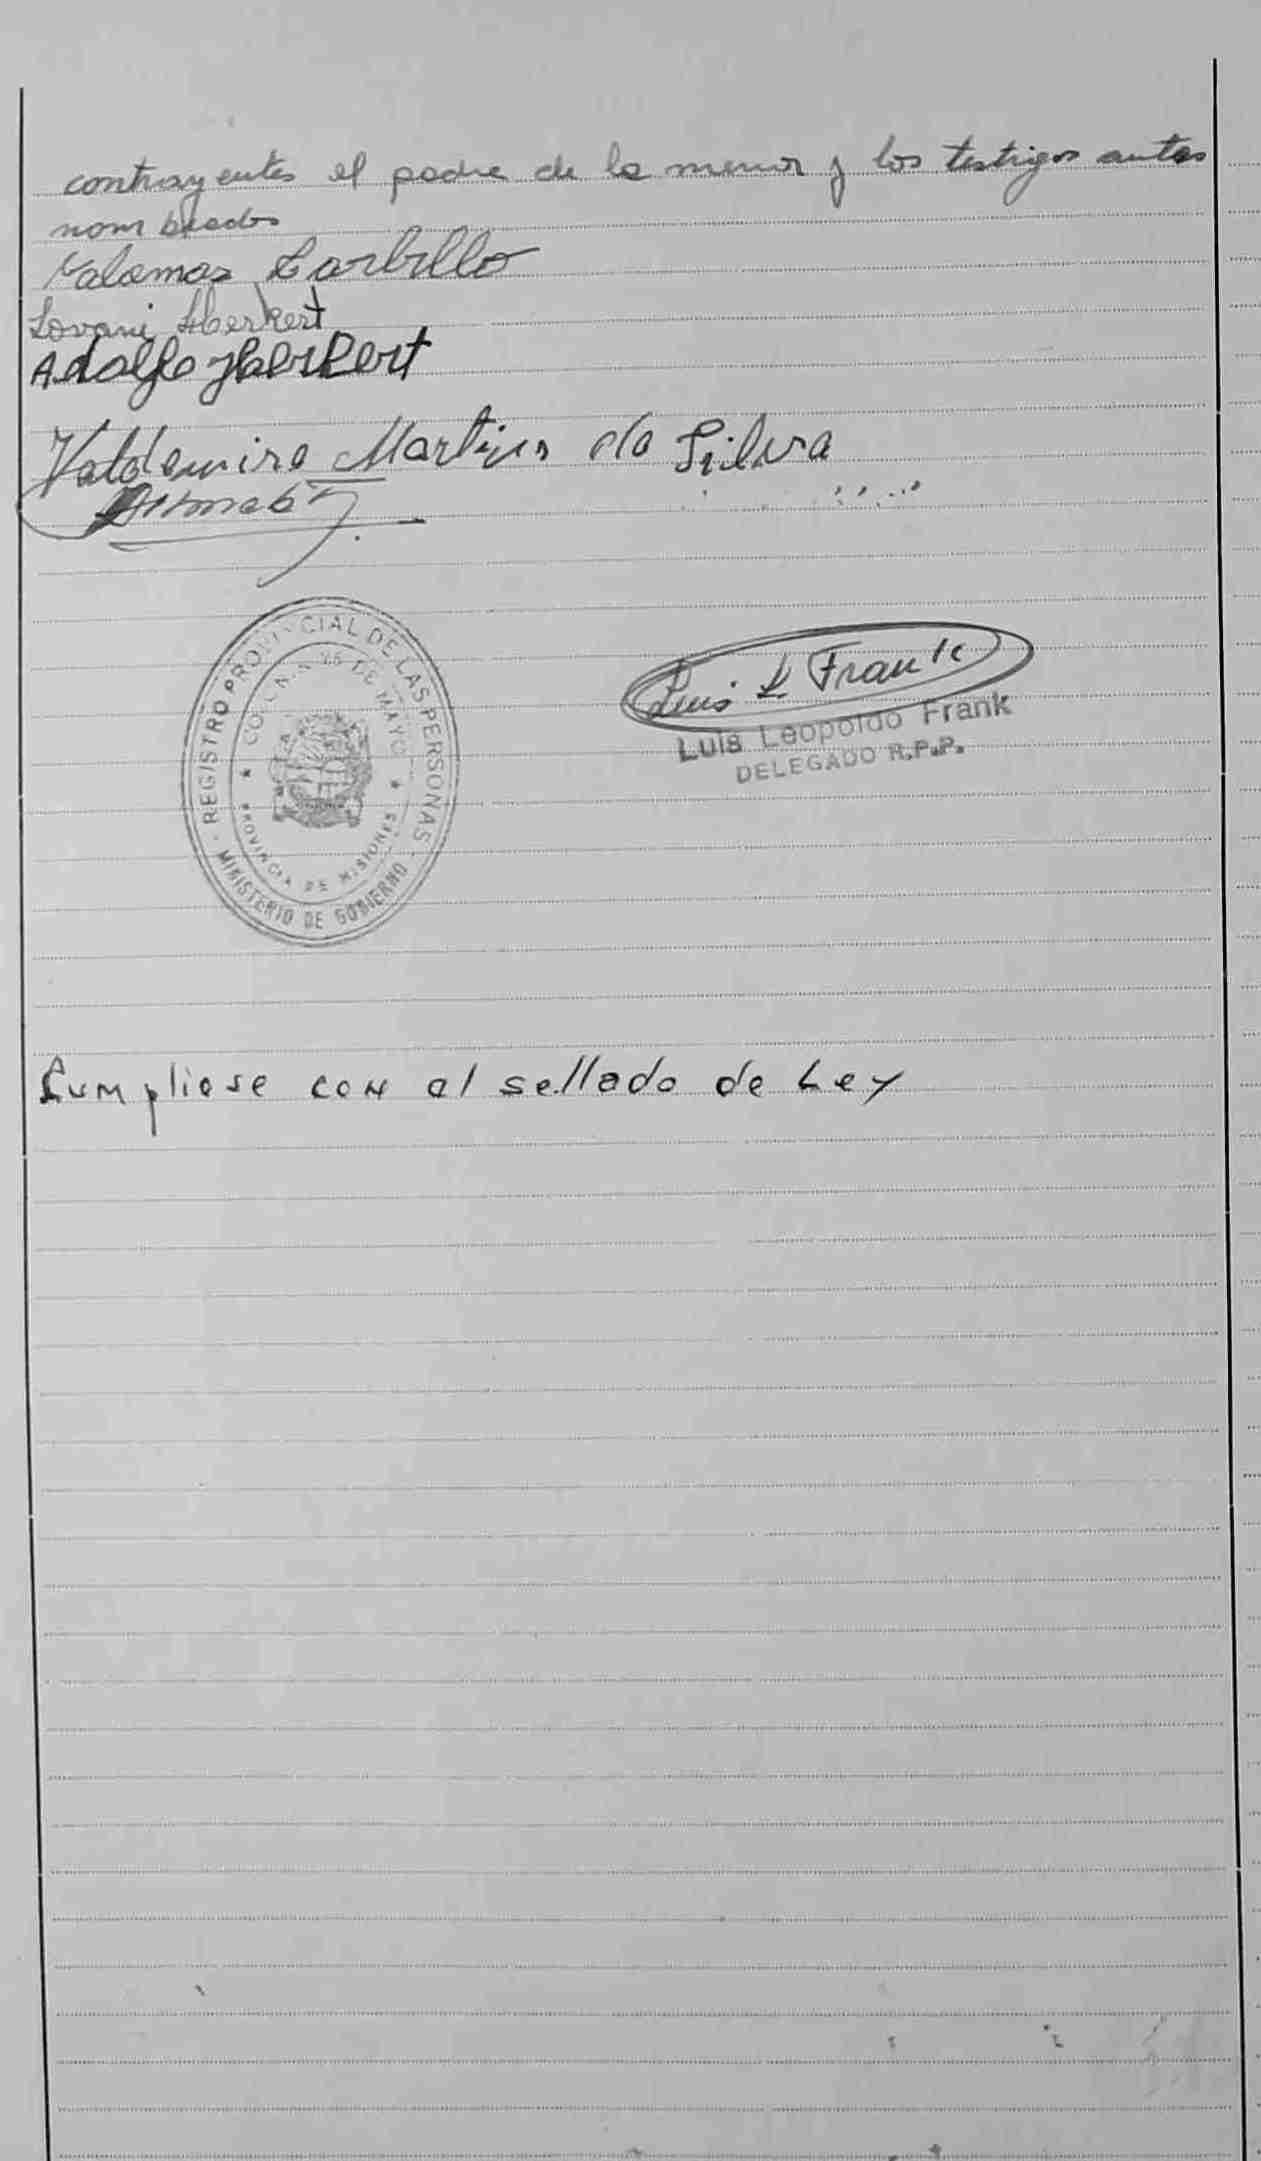 contrayentes el padre de la menor y los testigos antes
nombrados
Lovani Herkert
Adolfo Herkert
Valdemiro Martins da Silva
REGISTRO PROVINCIAL DE LAS PERSONAS
COLONIA 25 DE MAYO
PROVINCIA DE MISIONES
MINISTERIO DE GOBIERNO
Luis L Frank
Luis Leopoldo Frank
DELEGADO R.P.P.
Cumpliose con el sellado de Ley